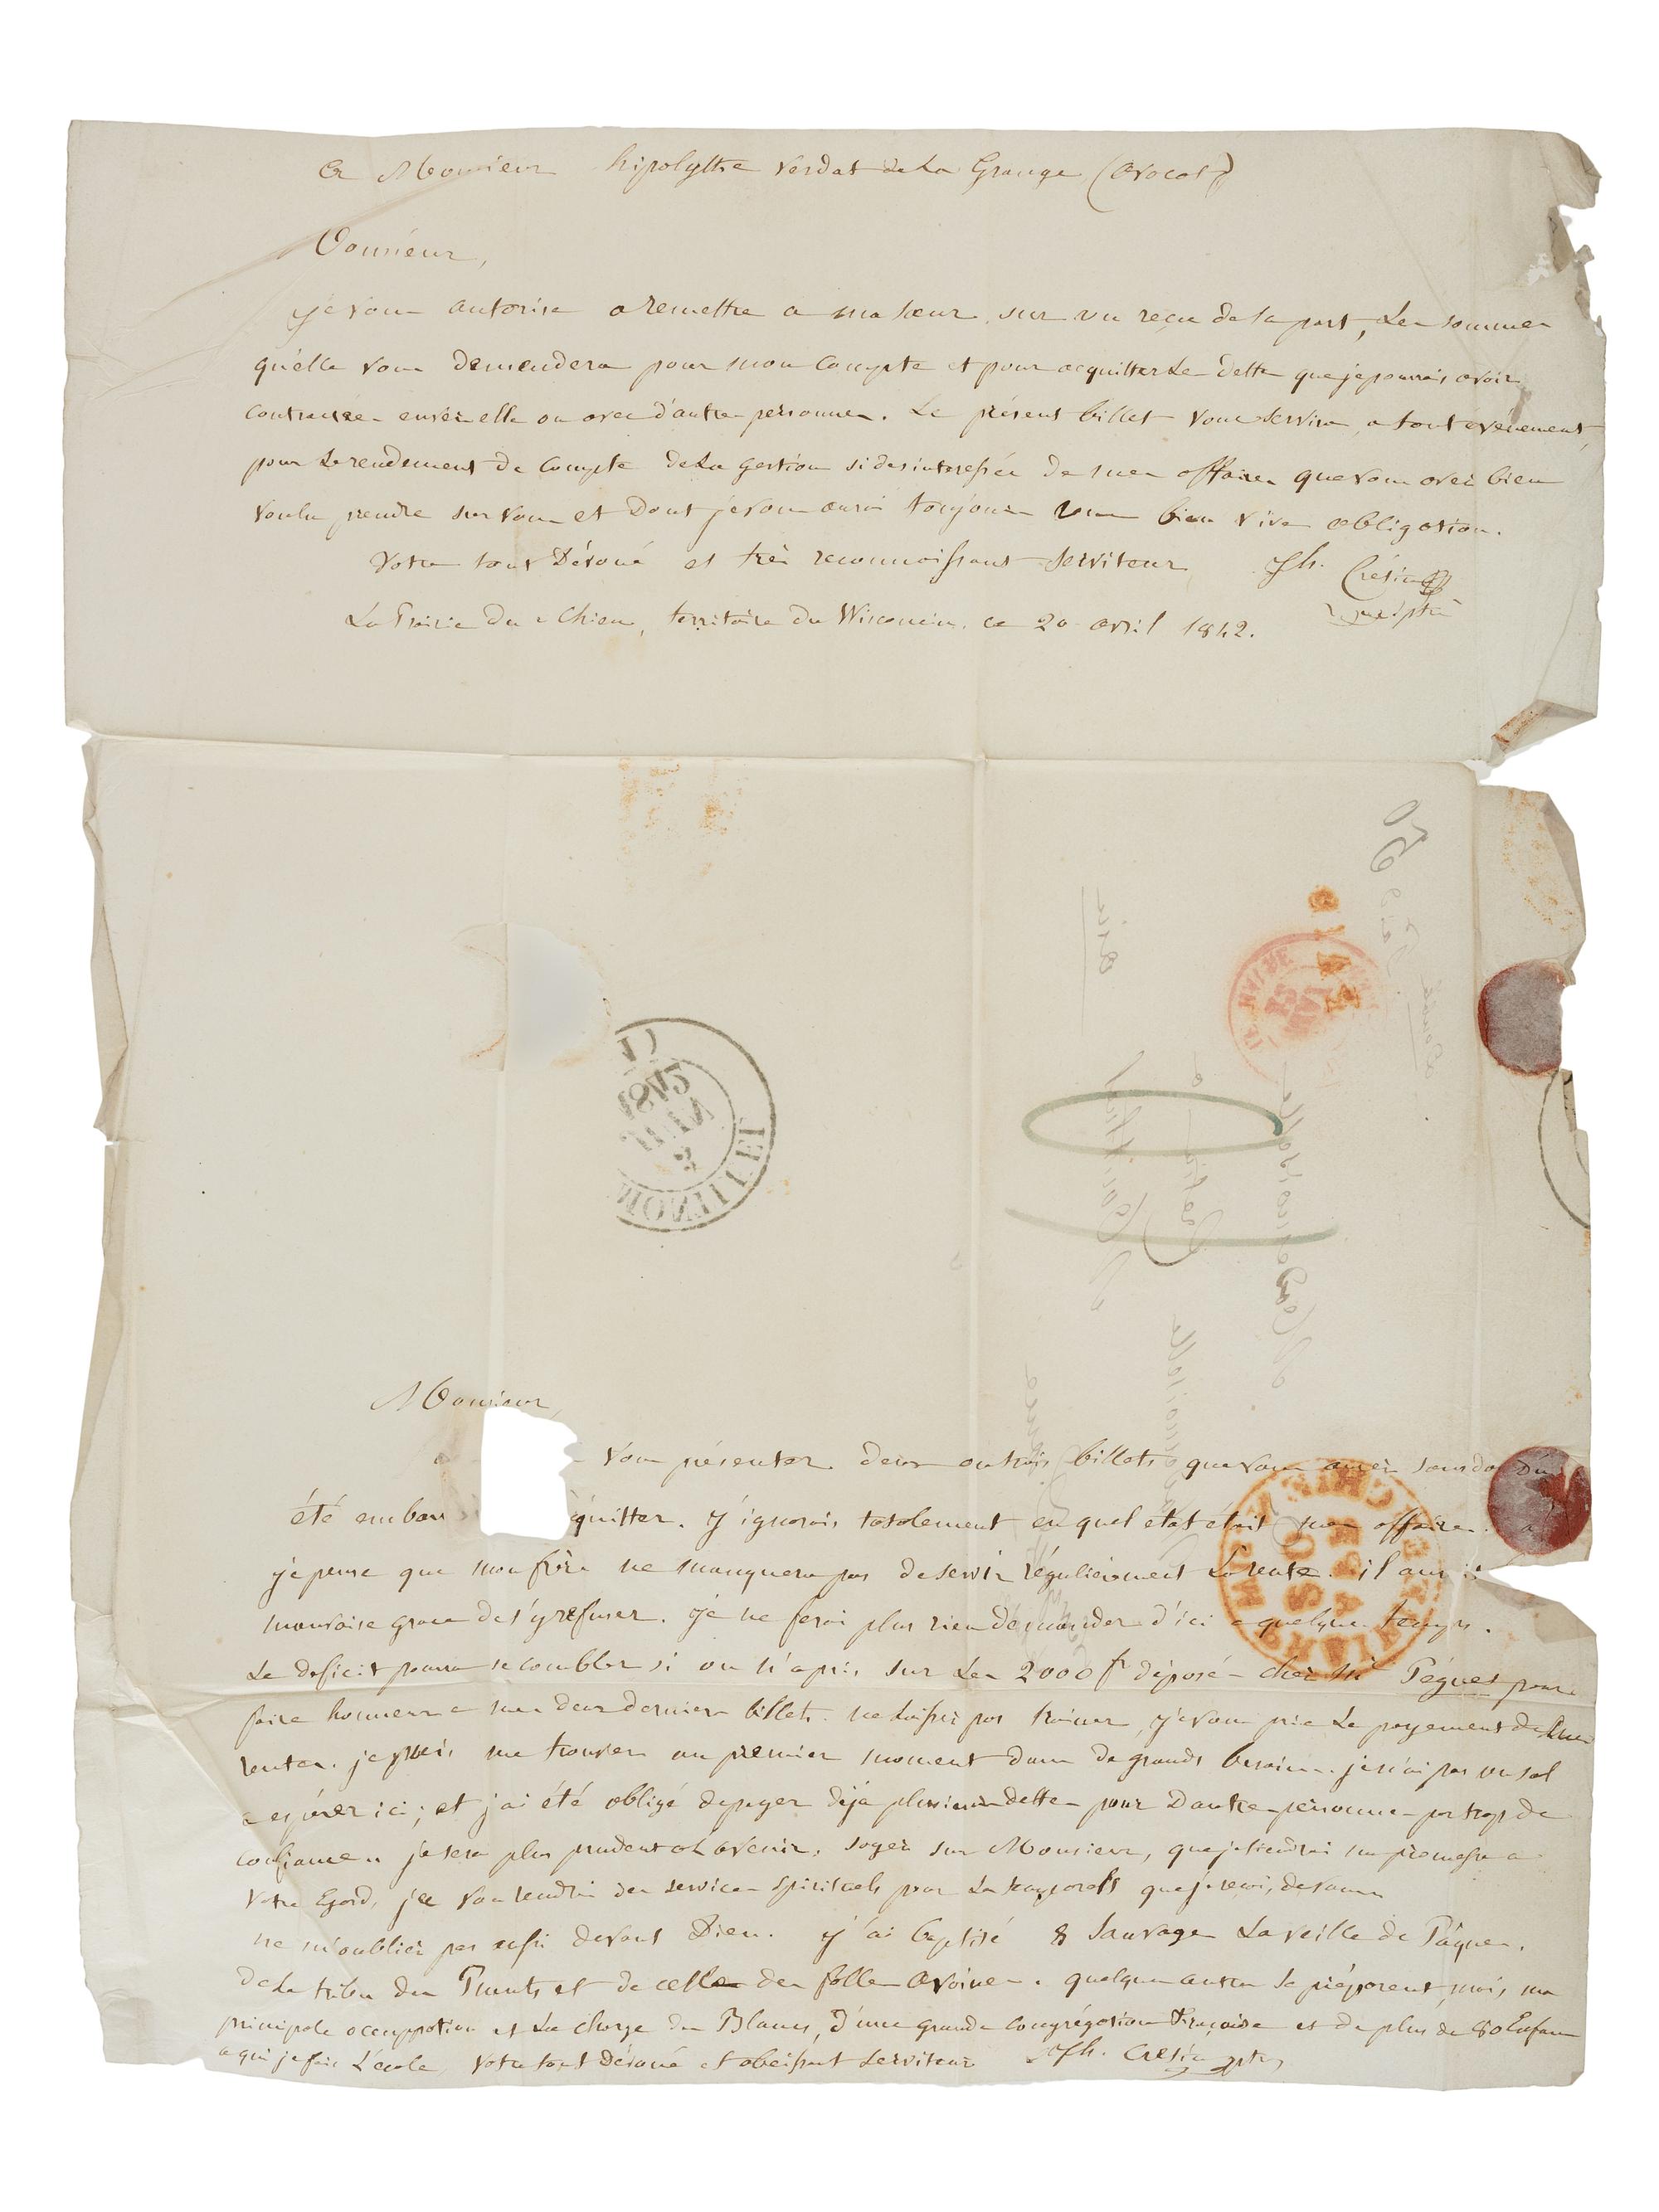 A Monsieur hipolythe Verdat de La Grange (avocat)
Monsieur,
je vous autorise a remettre a ma soeur, sur un reçu de sa part, les sommes
qu'elle vous demendera pour mon compte et pour acquitter les dettes que je pourrois avoir
contractées envers elle ou avec d'autres personnes. Le présent billet vous servira, a tout evénement,
pour le rendement de compte de la gestion si desinteressée de mes affaires que vous avez bien
voulu prendre sur vous et dont je vous aurai toujours une bien vive obligation.
Votre tout dévoué et très reconnoissant serviteur Jh. Crétin
ptre
La Prairie du Chien, territoire du Wisconsin, ce 20 avril 1842.
Monsieur,
vous présenter deux ou trois billets que vous aurez sans doute
été embar quitter. j'ignorois totalement en quel etat étoit mes affaires.
je pense que mon frère ne manquera pas de servir régulièrement la rente. il auroit
mauvaise grace de s'y refuser. je ne ferai plus rien demander d'ici a quelque temps.
Le deficit pourra se combler si on n'a pris sur les 2000 fr déposés chez Mr Péguet pour
faire honneur a mes deux derniers billets. ne laissez pas trainer, je vous prie le payement de mes
rentes. je puis me trouver au premier moment dans de grands besoins. je n'ai pas un sol
a espérer ici; et j'ai été obligé de payer déjà plusieurs dettes pour d'autres personnes par trop de
confiance. je serai plus prudent a l'avenir. soyez sur Monsieur, que je tiendrai ma promesse a
votre Egard, je vous rendrai des services spirituels pour les temporels que je reçois de vous
ne m'oubliez pas aussi devant Dieu. j'ai baptisé 8 Sauvages la veille de Pâques.
de la tribu des Puants et de celle des folles avoines. quelques autres se préparent, mais ma
principale occupation est la charge des Blancs, d'une grande congrégation Française et de plus de 80 Enfans
a qui je fais l'école. Votre tout dévoué et obéissant serviteur Jh. Crétin ptre